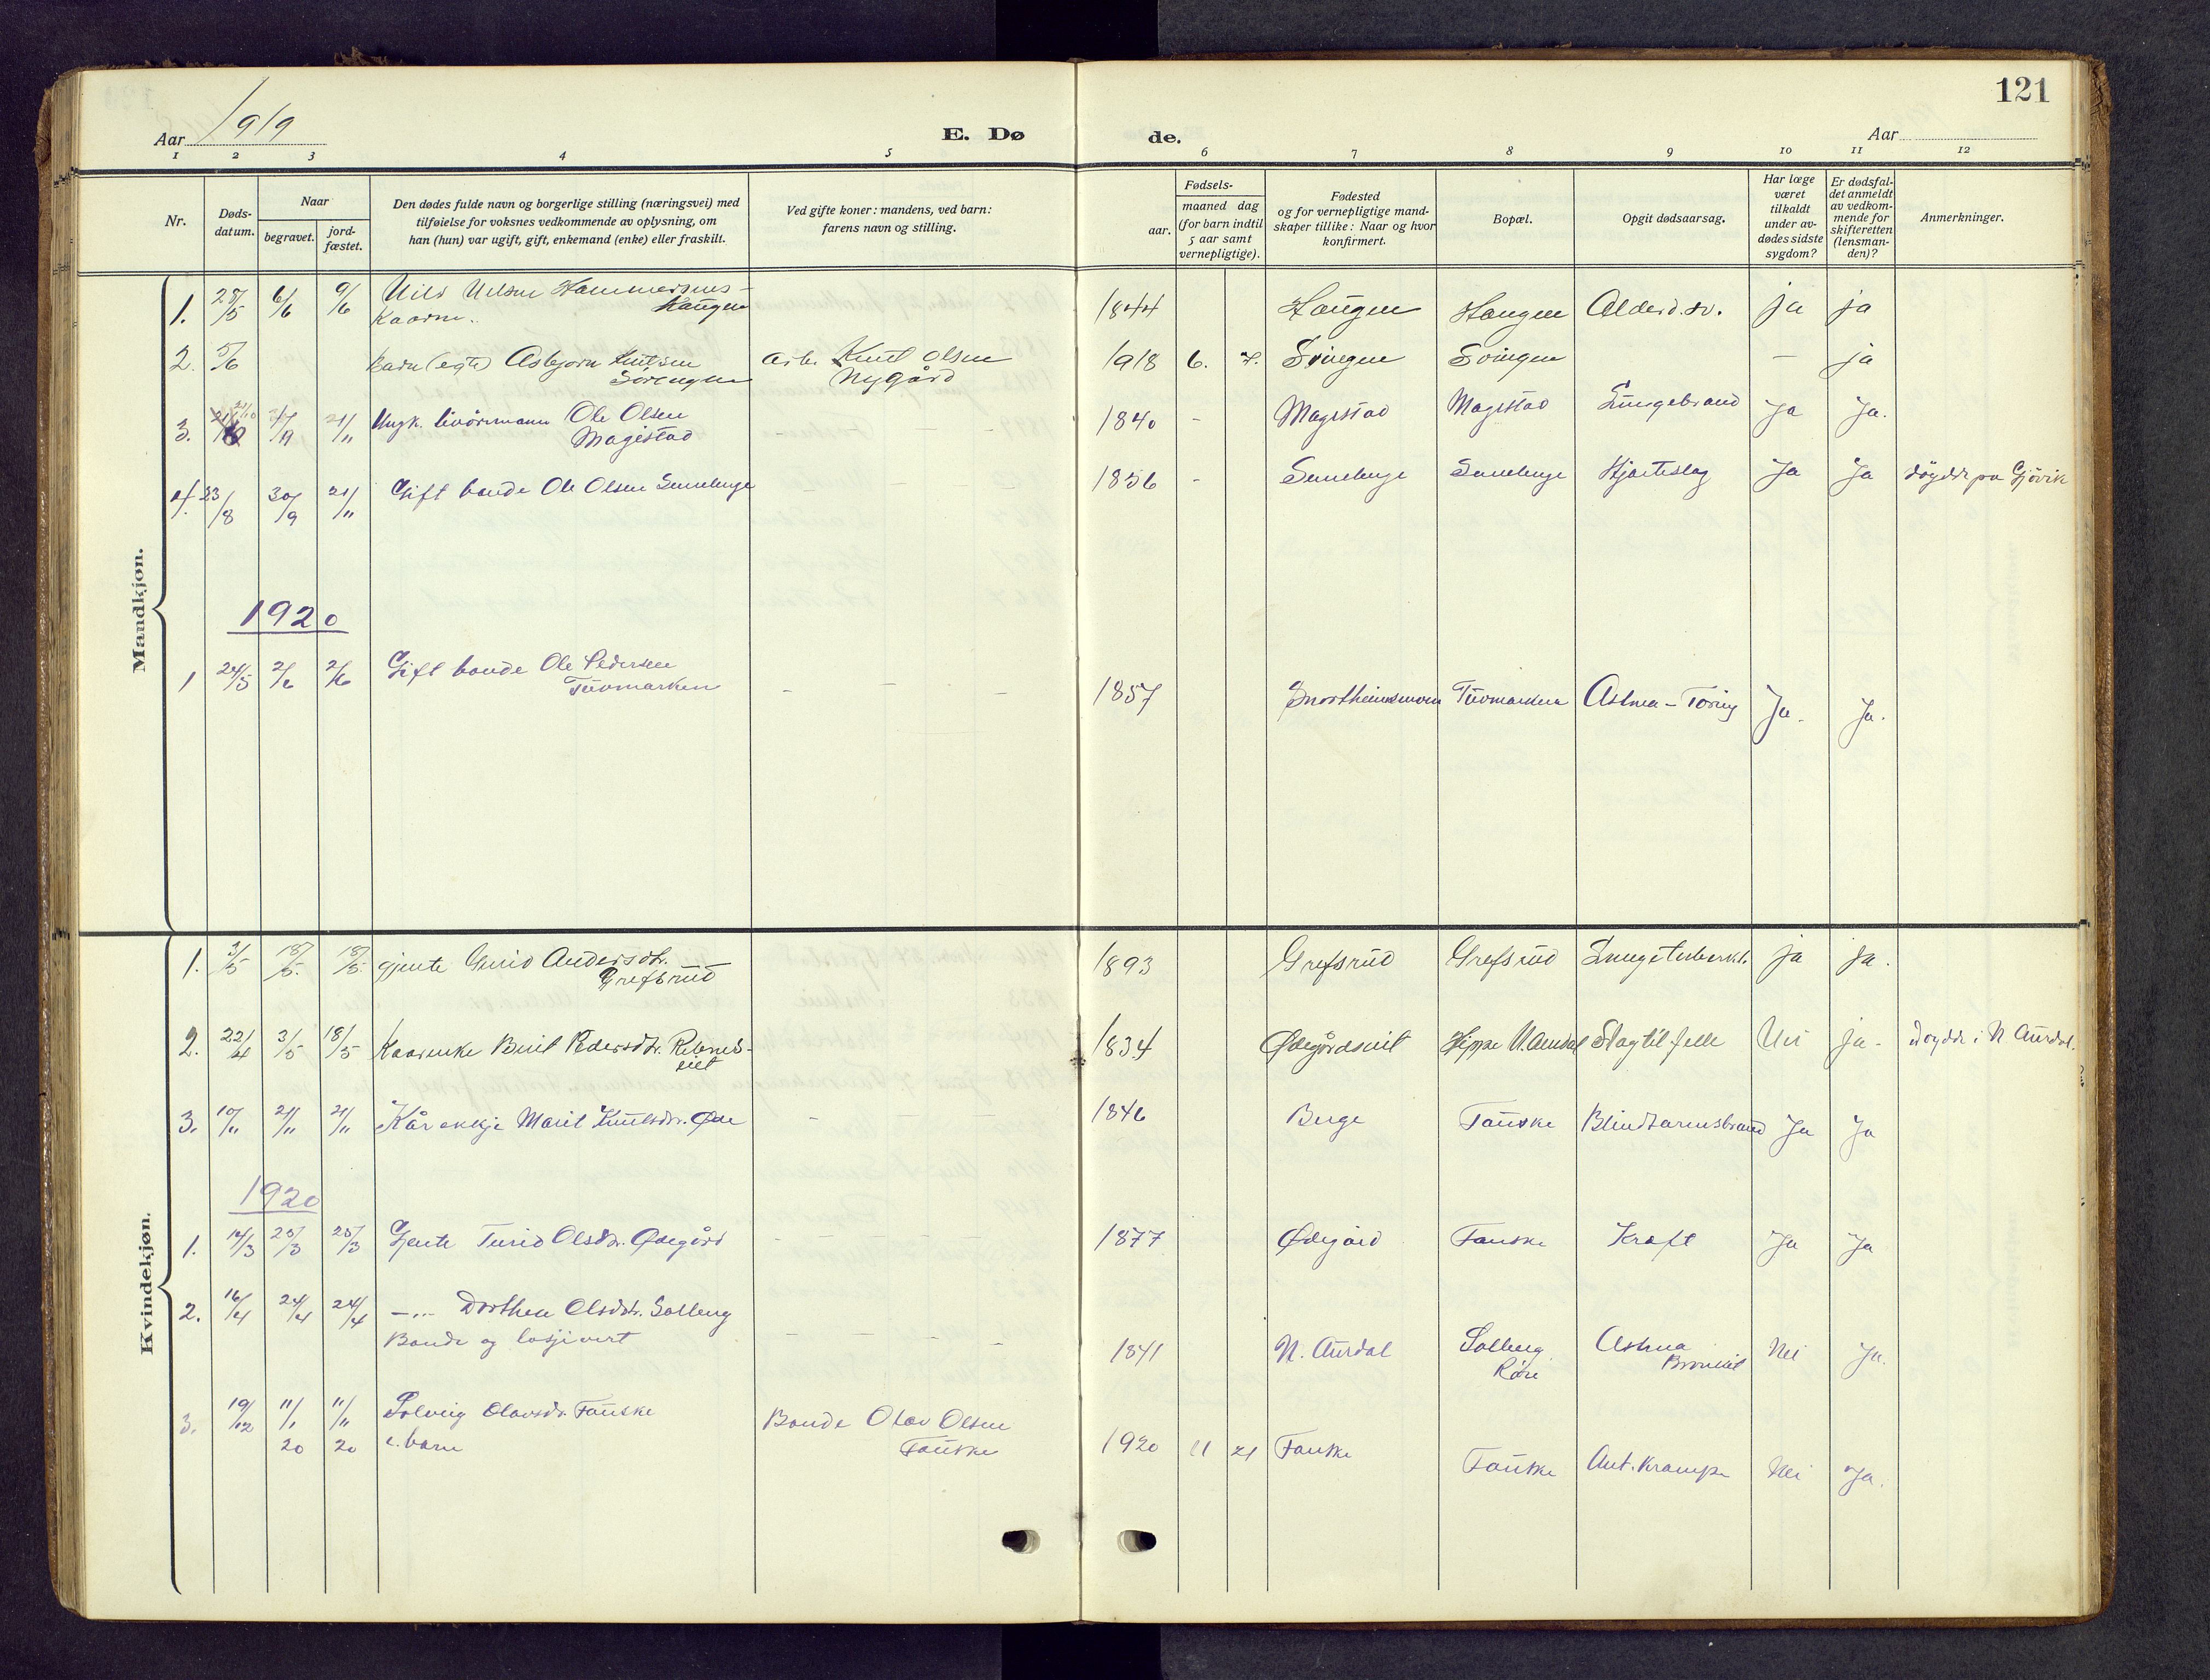 121
Aar 1919
E. Dø
de.
Aar
1 2 3 4 5 6 7 8 9 10 11 12
Nr.
Døds-
datum.
Naar
begravet.
jord-
fæstet.
Den dødes fulde navn og borgerlige stilling (næringsvei) med
tilføielse for voksnes vedkommende av oplysning, om
han (hun) var ugift, gift, enkemand (enke) eller fraskilt.
Ved gifte koner: mandens, ved barn:
farens navn og stilling.
aar.
Fødsels-
maaned dag
(for barn indtil
5 aar samt
vernepligtige).
Fødested
og for vernepligtige mand-
skaper tillike: Naar og hvor
konfirmert.
Bopæl.
Opgit dødsaarsag.
Har læge
været
tilkaldt
under av-
dødes sidste
sygdom?
Er dødsfal-
det anmeldt
av vedkom-
mende for
skifteretten
(lensman-
den)?
Anmerkninger.
Mandkjøn.
1. 28/5 6/6 9/6 Nils Nilsen Hammersnes- 1844 Haugen Haugen Alderd.sv. ja ja
Haugen
Kaarm.
2. 5/6 Barn (egte) Asbjørn Knutsen Arb. Knut Olsen 1918 6. 7. Svingen Svingen — ja
Nygård
3. 21/11 Ungk. Ole Olsen 1840 - Magistad Magistad Lungebrand Ja Ja.
Magistad
4. 23/8 30/9 21/11 Gift bonde Ole Olsen 1856 - Hjarteslag Ja Ja døydde pa Gjøvik
1920
1 24/5 2/6 2/6 Gift bonde Ole Pedersen 1857 Tuvmarken Astma - Ja. Ja.
Tuvmarken
Kvindekjøn.
1. 3/5 18/5. 18/5. gjente Gurid Andersdtr. 1893 Grefsrud Grefsrud Lungetuberkl. ja ja.
Grefsrud
2. 22/4 3/5 18/5 Kaarenke Berit Pedersdtr. 1834 N. Aurdal Slagtilfelle Nei ja. døydde i N Aurdal.
3. 10/11 21/11 21/11 Kår enkje Marit Knutsdtr. Øde - 1846 Berge Fauske Blindtarmsbrand Ja Ja
1920
1. 14/3 25/3 25/3 Gjente Turid Olsdtr. Ødegård 1877 Ødegård Fauske Kræft Ja Ja
2. 16/4 24/4 24/4 —"— Dorthea Olsdtr. Solberg
Bonde og losjivert 1841 N. Aurdal Solberg Astma Nei Ja.
Bronkit
3. 19/12 11/1 11/11 Solveig Olavsdr. Fauske Bonde Olav Olsen
20 20 e. barn Fauske 1920 11 21 Fauske
Fauske Ant. Krampe Nei Ja.